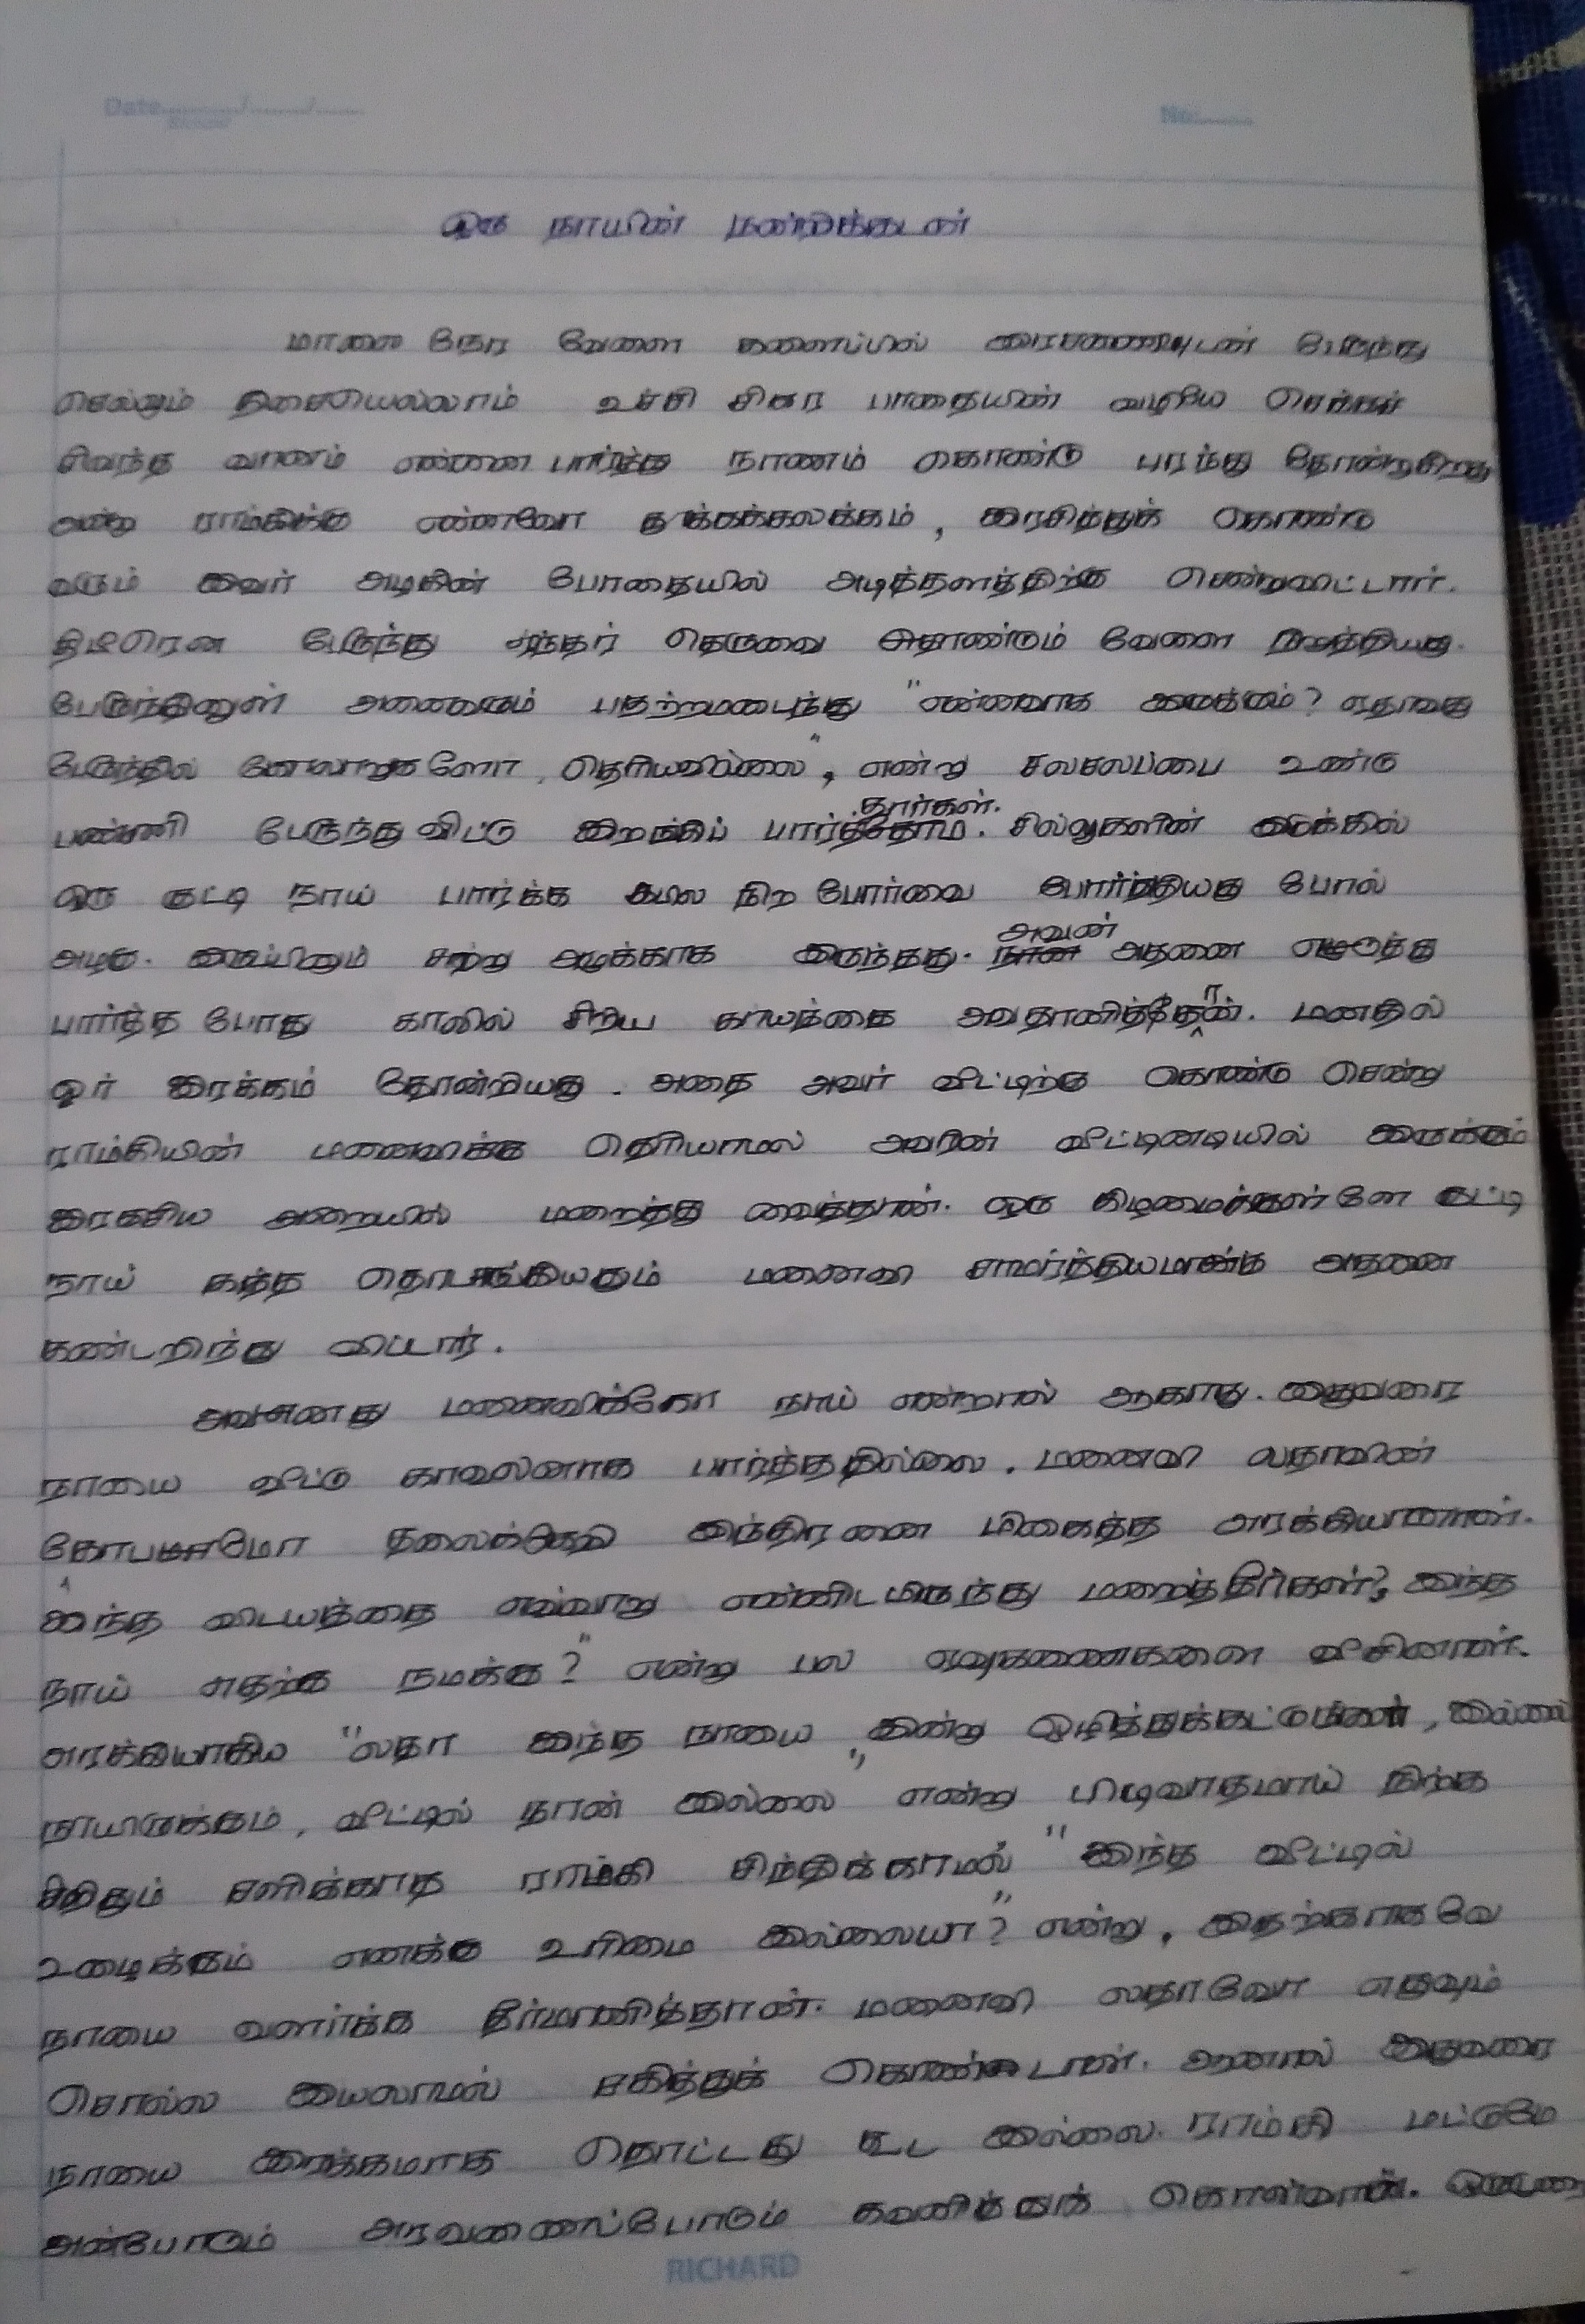 Date ......./......./.......
No:.......
ஒரு நாயின் நன்றிக்கடன்
மாலை நேர வேளை களைப்பில் அரவணைப்புடன் பேருந்து
செல்லும் திசையெல்லாம் உச்சி சிகர பாதையின் வழியே செக்கச்
சிவந்த வானம் என்னை பார்த்து நாணம் கொண்டு பரந்து தோன்றுகிறது
அன்று ராம்கிக்கு என்னவோ தூக்கக்கலக்கம், இரசித்துக் கொண்டு
வரும் இவர் அழகின் போதையில் அடித்தளத்திற்கு சென்றுவிட்டார்.
திடீரென பேருந்து சந்தர் தெருவை தாண்டும் வேளை நிறுத்தியது.
பேருந்தினுள் அனைவரும் பதற்றமடைந்து "என்னவாக இருக்கும்? ஏதாவது
பேருந்தில் கோளாறுகளோ தெரியவில்லை", என்று சலசலப்பை உண்டு
பண்ணி பேருந்து விட்டு இறங்கிப் பார்த்தார்கள். சில்லுகளின் இடுக்கில்
ஒரு குட்டி நாய் பார்க்க கபில நிற போர்வை போர்த்தியது போல்
அழகு. இருப்பினும் சற்று அழுக்காக இருந்தது. அவன் அதனை எடுத்து
பார்த்த போது காலில் சிறிய காயத்தை அவதானித்தான். மனதில்
ஓர் இரக்கம் தோன்றியது. அதை அவர் வீட்டிற்கு கொண்டு சென்று
ராம்கியின் மனைவிக்கு தெரியாமல் அவரின் வீட்டினடியில் இருக்கும்
இரகசிய அறையில் மறைத்து வைத்தான். ஒரு கிழமைக்குள்ளே குட்டி
நாய் கத்த தொடங்கியதும் மனைவி சாமர்த்தியமாக அதனை
கண்டறிந்து விட்டார்.
அவனது மனைவிக்கோ நாய் என்றால் ஆகாது. இதுவரை
நாயை வீட்டு காவலனாக பார்த்ததில்லை. மனைவி லதாவின்
கோபமோ தலைக்கேறி இந்திரனை மிகைத்த அரக்கியானாள்.
இந்த விடயத்தை எவ்வாறு என்னிடமிருந்து மறைத்தீர்கள்? இந்த
நாய் எதற்கு நமக்கு?" என்று பல ஏவுகணைகளை வீசினாள்.
அரக்கியாகிய "லதா இந்த நாயை இன்று ஒழித்துக்கட்டுங்கள், இல்லை
நாயிருக்கும், வீட்டில் நான் இல்லை" என்று பிடிவாதமாய் நிற்க
சிறிதும் சளிக்காத ராம்கி சிந்திக்காமல் "இந்த வீட்டில்
உழைக்கும் எனக்கு உரிமை இல்லையா?" என்று, இதற்காகவே
நாயை வளர்க்க தீர்மானித்தான். மனைவி லதாவோ எதுவும்
சொல்ல இயலாமல் சகித்துக் கொண்டாள். ஆனால் இதுவரை
நாயை இரக்கமாக தொட்டது கூட இல்லை. ராம்கி மட்டுமே
அன்போடும் அரவணைப்போடும் கவனித்துக் கொள்வான்.
RICHARD